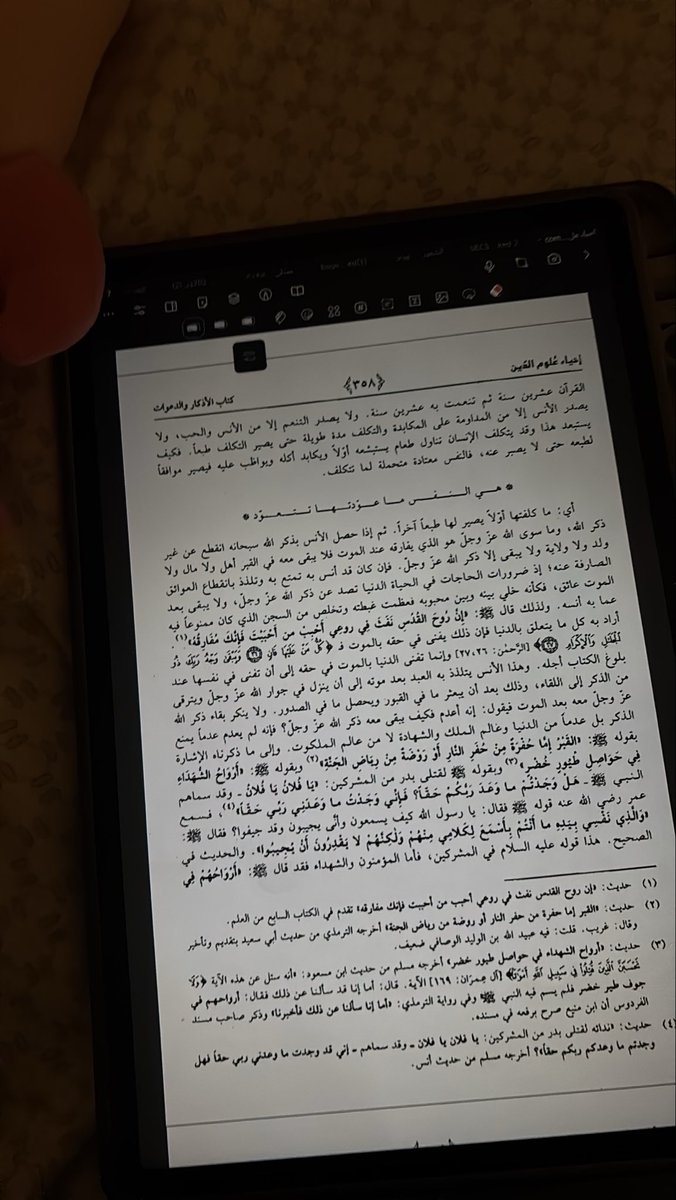 إحياء علوم الدين
﴿٣٥٨﴾
كتاب الأذكار والدعوات
القرآن عشرين سنة ثم تنعمت به عشرين سنة. ولا يصدر التنعم إلا من الأنس والحب، ولا
يصدر الأنس إلا من المداومة على المكابدة والتكلف مدة طويلة حتى يصير التكلف طبعاً. فكيف
يستبعد هذا وقد يتكلف الإنسان تناول طعام يستبشعه أوّلاً ويكابد أكله ويواظب عليه فيصير موافقاً
لطبعه حتى لا يصبر عنه، فالنفس معتادة متحملة لما تتكلف.
* هـي النـفـس مـا عـوّدتـهـا تـتـعـوّد *
أي: ما كلفتها أوّلاً يصير لها طبعاً آخراً. ثم إذا حصل الأنس بذكر الله سبحانه انقطع عن غير
ذكر الله، وما سوى الله عزّ وجلّ هو الذي يفارقه عند الموت فلا يبقى معه في القبر أهل ولا مال ولا
ولد ولا ولاية ولا يبقى إلا ذكر الله عزّ وجلّ. فإن كان قد أنس به تمتع به وتلذذ بانقطاع العوائق
الصارفة عنه؛ إذ ضرورات الحاجات في الحياة الدنيا تصد عن ذكر الله عزّ وجلّ، ولا يبقى بعد
الموت عائق، فكأنه خلي بينه وبين محبوبه فعظمت غبطته وتخلص من السجن الذي كان ممنوعاً فيه
عما به أنسه. ولذلك قال ﷺ: «إِنَّ رُوحَ القُدُسِ نَفَثَ فِي رُوعِي أَحْبِبْ مَنْ أَحْبَبْتَ فَإِنَّكَ مُفَارِقُهُ»(١).
أراد به كل ما يتعلق بالدنيا فإن ذلك يفنى في حقه بالموت فـ ﴿كُلُّ مَنْ عَلَيْهَا فَانٍ ٢٦ وَيَبْقَى وَجْهُ رَبِّكَ ذُو
الْجَلَالِ وَالْإِكْرَامِ ٢٧﴾ [الرَّحمٰن: ٢٦،٢٧] وإنما تفنى الدنيا بالموت في حقه إلى أن تفنى في نفسها عند
بلوغ الكتاب أجله. وهذا الأنس يتلذذ به العبد بعد موته إلى أن ينزل في جوار الله عزّ وجلّ ويترقى
من الذكر إلى اللقاء، وذلك بعد أن يبعثر ما في القبور ويحصل ما في الصدور. ولا ينكر بقاء ذكر الله
عزّ وجلّ معه بعد الموت فيقول: إنه أعدم فكيف يبقى معه ذكر الله عزّ وجلّ؟ فإنه لم يعدم عدماً يمنع
الذكر بل عدماً من الدنيا وعالم الملك والشهادة لا من عالم الملكوت. وإلى ما ذكرناه الإشارة
بقوله ﷺ: «القَبْرُ إِمَّا حُفْرَةٌ مِنْ حُفَرِ النَّارِ أَوْ رَوْضَةٌ مِنْ رِيَاضِ الجَنَّةِ»(٢) وبقوله ﷺ: «أَرْوَاحُ الشُّهَدَاءِ
فِي حَوَاصِلِ طُيُورٍ خُضْرٍ»(٣) وبقوله ﷺ لقتلى بدر من المشركين: «يَا فُلَانُ يَا فُلَانُ - وقد سماهم
النبي ﷺ - هَلْ وَجَدْتُمْ مَا وَعَدَ رَبُّكُمْ حَقّاً؟ فَإِنِّي وَجَدْتُ مَا وَعَدَنِي رَبِّي حَقّاً»(٤)، فسمع
عمر رضي الله عنه قوله ﷺ فقال: يا رسول الله كيف يسمعون وأنّى يجيبون وقد جيفوا؟ فقال ﷺ:
«وَالَّذِي نَفْسِي بِيَدِهِ مَا أَنْتُمْ بِأَسْمَعَ لِكَلَامِي مِنْهُمْ وَلَكِنَّهُمْ لَا يَقْدِرُونَ أَنْ يُجِيبُوا». والحديث في
الصحيح. هذا قوله عليه السلام في المشركين، فأما المؤمنون والشهداء فقد قال ﷺ: «أَرْوَاحُهُمْ فِي
(١) حديث: «إن روح القدس نفث في روعي أحبب من أحببت فإنك مفارقه» تقدم في الكتاب السابع من العلم.
(٢) حديث: «القبر إما حفرة من حفر النار أو روضة من رياض الجنة» أخرجه الترمذي من حديث أبي سعيد بتقديم وتأخير
وقال: غريب. قلت: فيه عبيد الله بن الوليد الوصافي ضعيف.
(٣) حديث: «أرواح الشهداء في حواصل طيور خضر» أخرجه مسلم من حديث ابن مسعود: «أنه سئل عن هذه الآية ﴿وَلَا
تَحْسَبَنَّ الَّذِينَ قُتِلُوا فِي سَبِيلِ اللَّهِ أَمْوَاتًا﴾ [آل عِمرَان: ١٦٩] الآية. قال: أما إنا قد سألنا عن ذلك فقال: أرواحهم في
جوف طير خضر فلم يسم فيه النبي ﷺ وفي رواية الترمذي: «أما إنا سألنا عن ذلك فأخبرنا» وذكر صاحب مسند
الفردوس أن ابن منيع صرح برفعه في مسنده.
(٤) حديث: «ندائه لقتلى بدر من المشركين: يا فلان يا فلان - وقد سماهم - إني قد وجدت ما وعدني ربي حقاً فهل
وجدتم ما وعدكم ربكم حقاً»؟ أخرجه مسلم من حديث أنس.